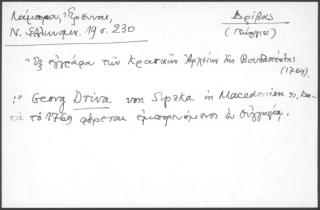 Λάμπρου, Ἔρευναι,
Ν. Ἑλληνομν. 19 σ. 230
Δρίβας
(Γεώργιος)
Ἐξ ἐγγράφων τῶν Κρατικῶν Ἀρχείων τῆς Βουδαπέστης
(1769).
"Georg Driva von Sipzka in Macedonien", κα-
τὰ τὸ 1769 φέρεται ἐμπορευόμενος ἐν Οὑγγαρίᾳ.